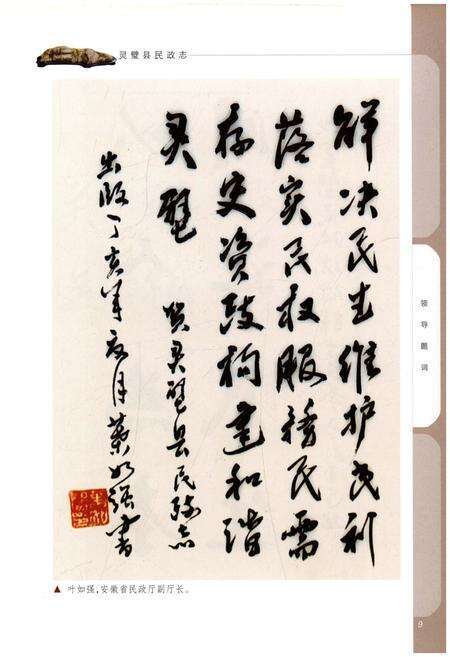 灵璧县民政志
解决民生维护民利
落实民权服务民需
存史资政构建和谐
灵璧
贺灵璧县民政志
出版丁亥年夏月叶如强书
领导题词
▲ 叶如强,安徽省民政厅副厅长。
9